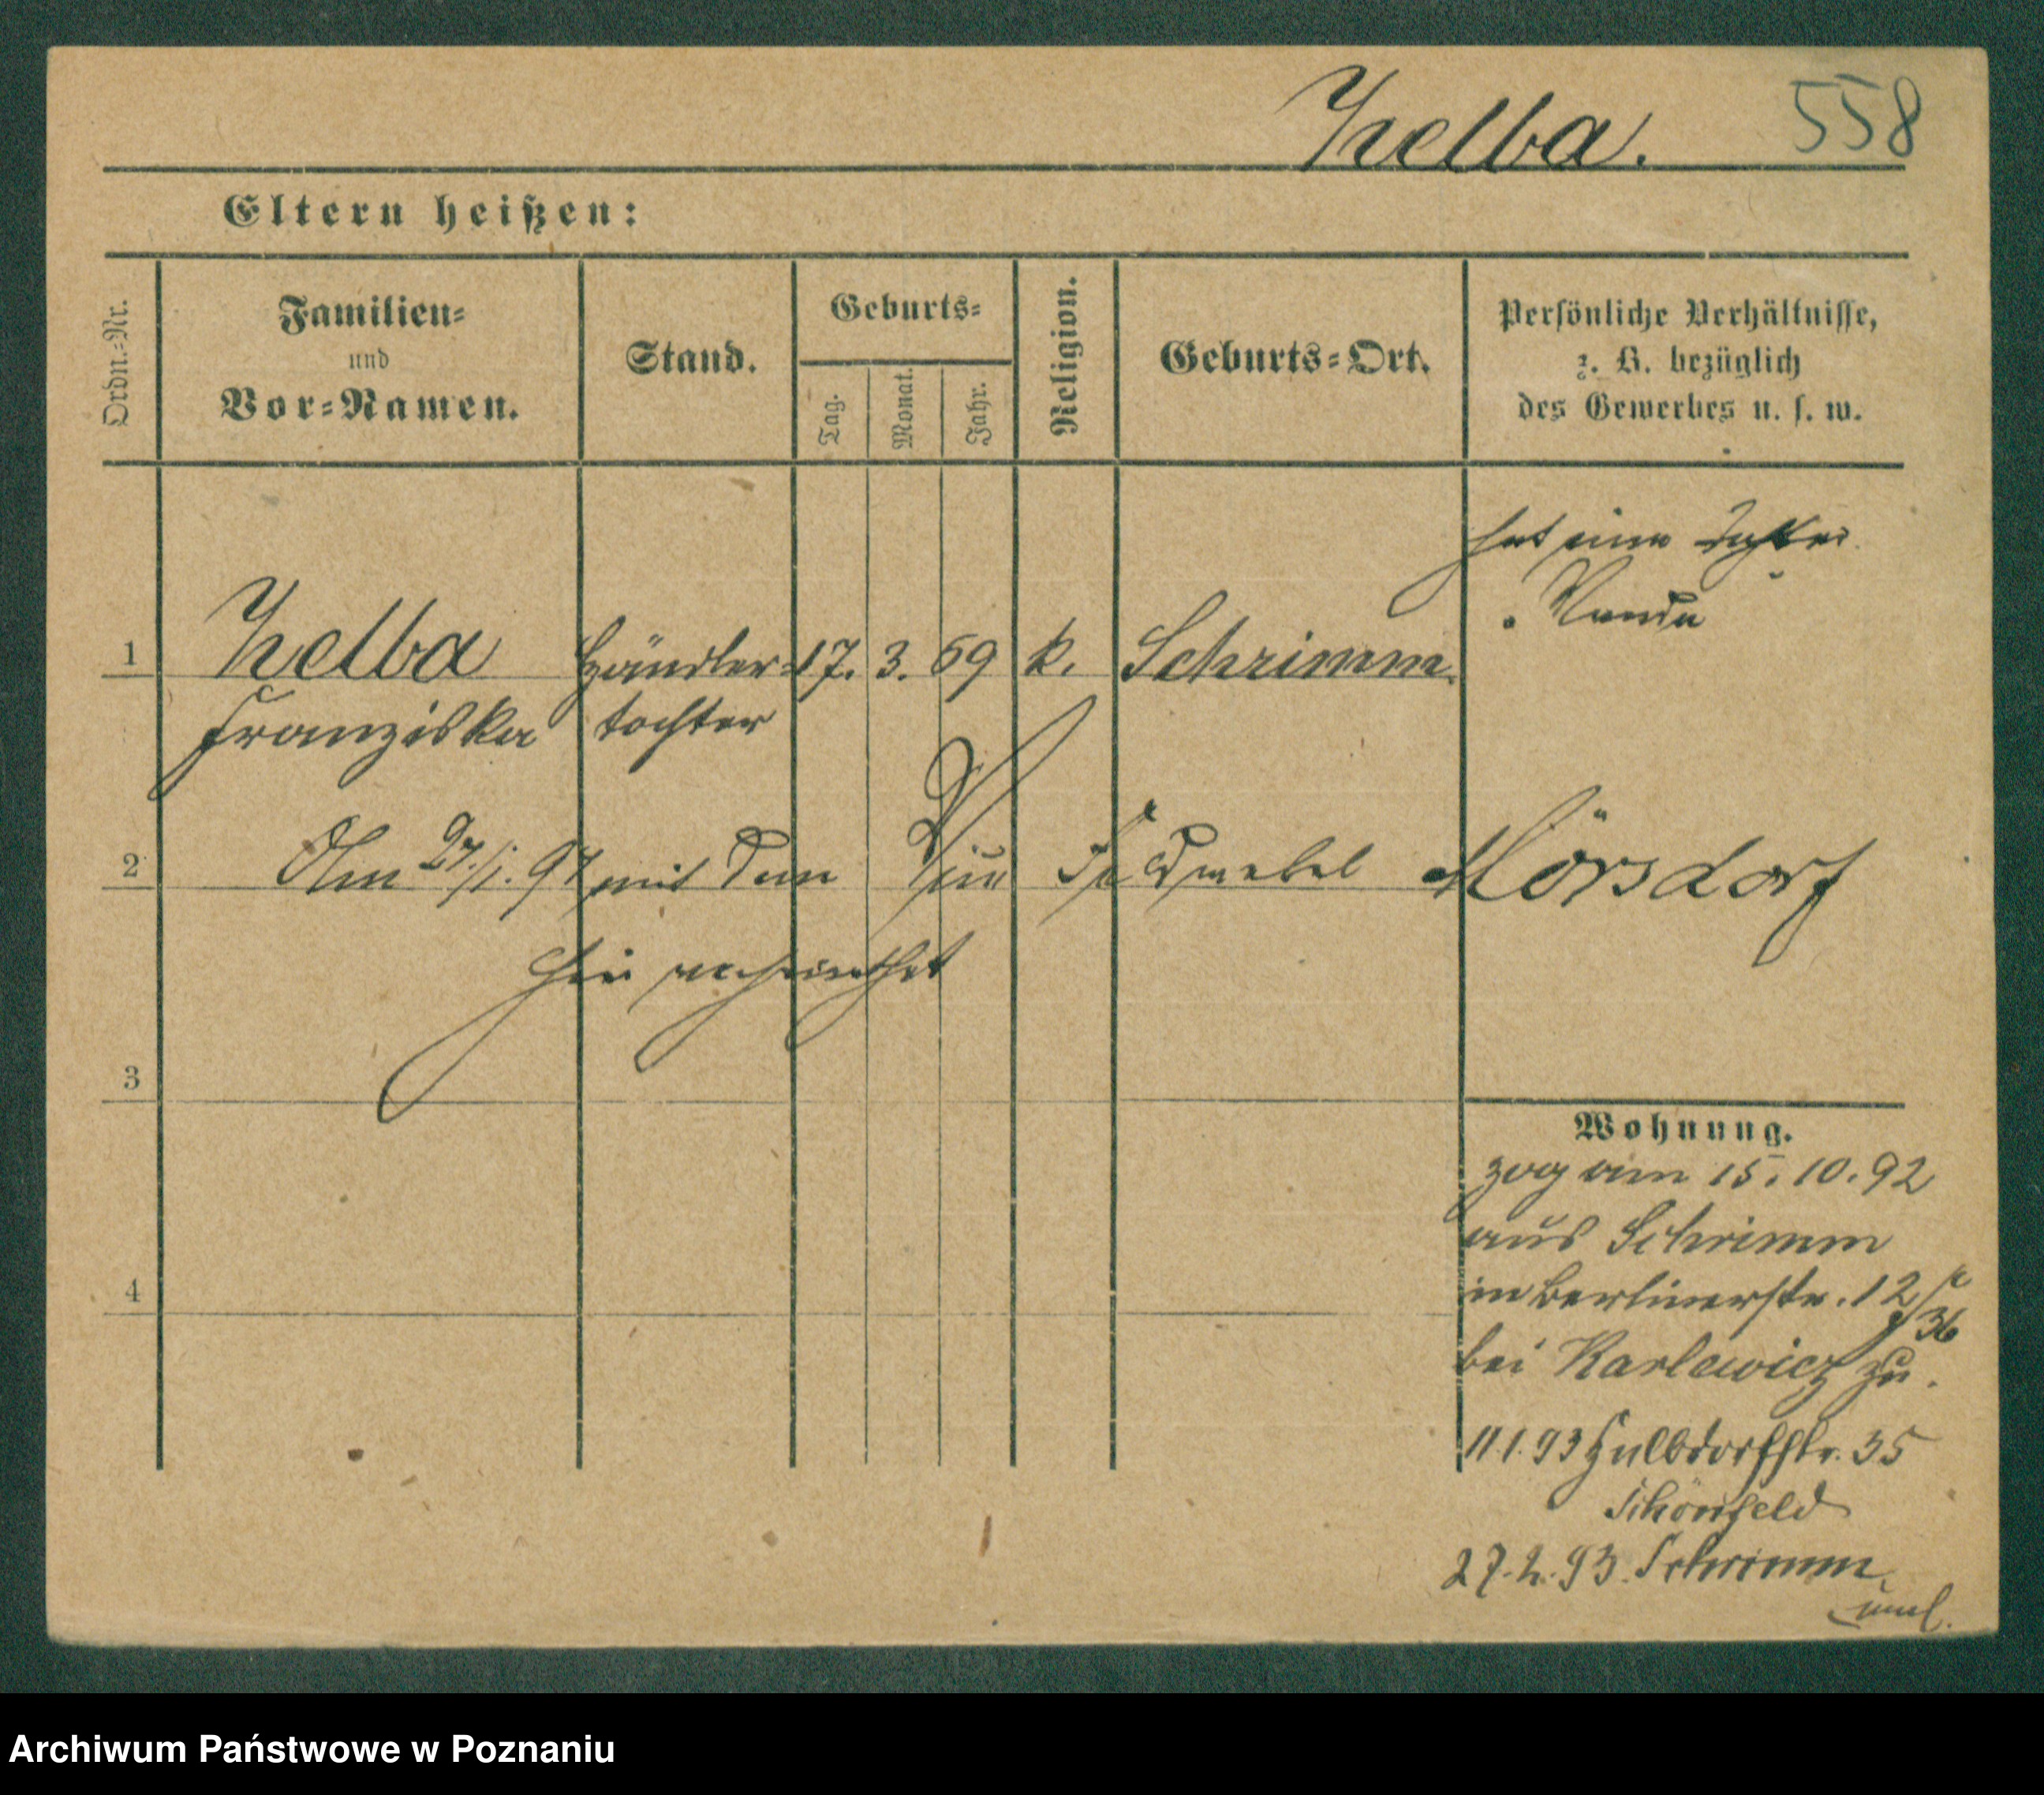 Zielba. 558
Eltern heißen:
Ordn.-Nr.
Familien-
und
Vor-Namen.
Stand.
Geburts-
Tag.
Monat.
Jahr.
Religion.
Geburts-Ort.
Persönliche Verhältnisse,
z. B. bezüglich
des Gewerbes u. s. w.
hat eine Tochter
Wanda
1 Händler- 17. 3. 69 k. Schrimm.
Franziska tochter
2 Am 27./1. 97 mit dem Feldwebel Mörsdorf
hier verheirathet
3
Wohnung.
zog am 15.10.92
aus Schrimm
in Berlinerstr. 12
36
4
bei Karlewicz zu.
11.1.93 Halbdorfstr. 35
Schönfeld
27.2.93. Schrimm
Archiwum Państwowe w Poznaniu